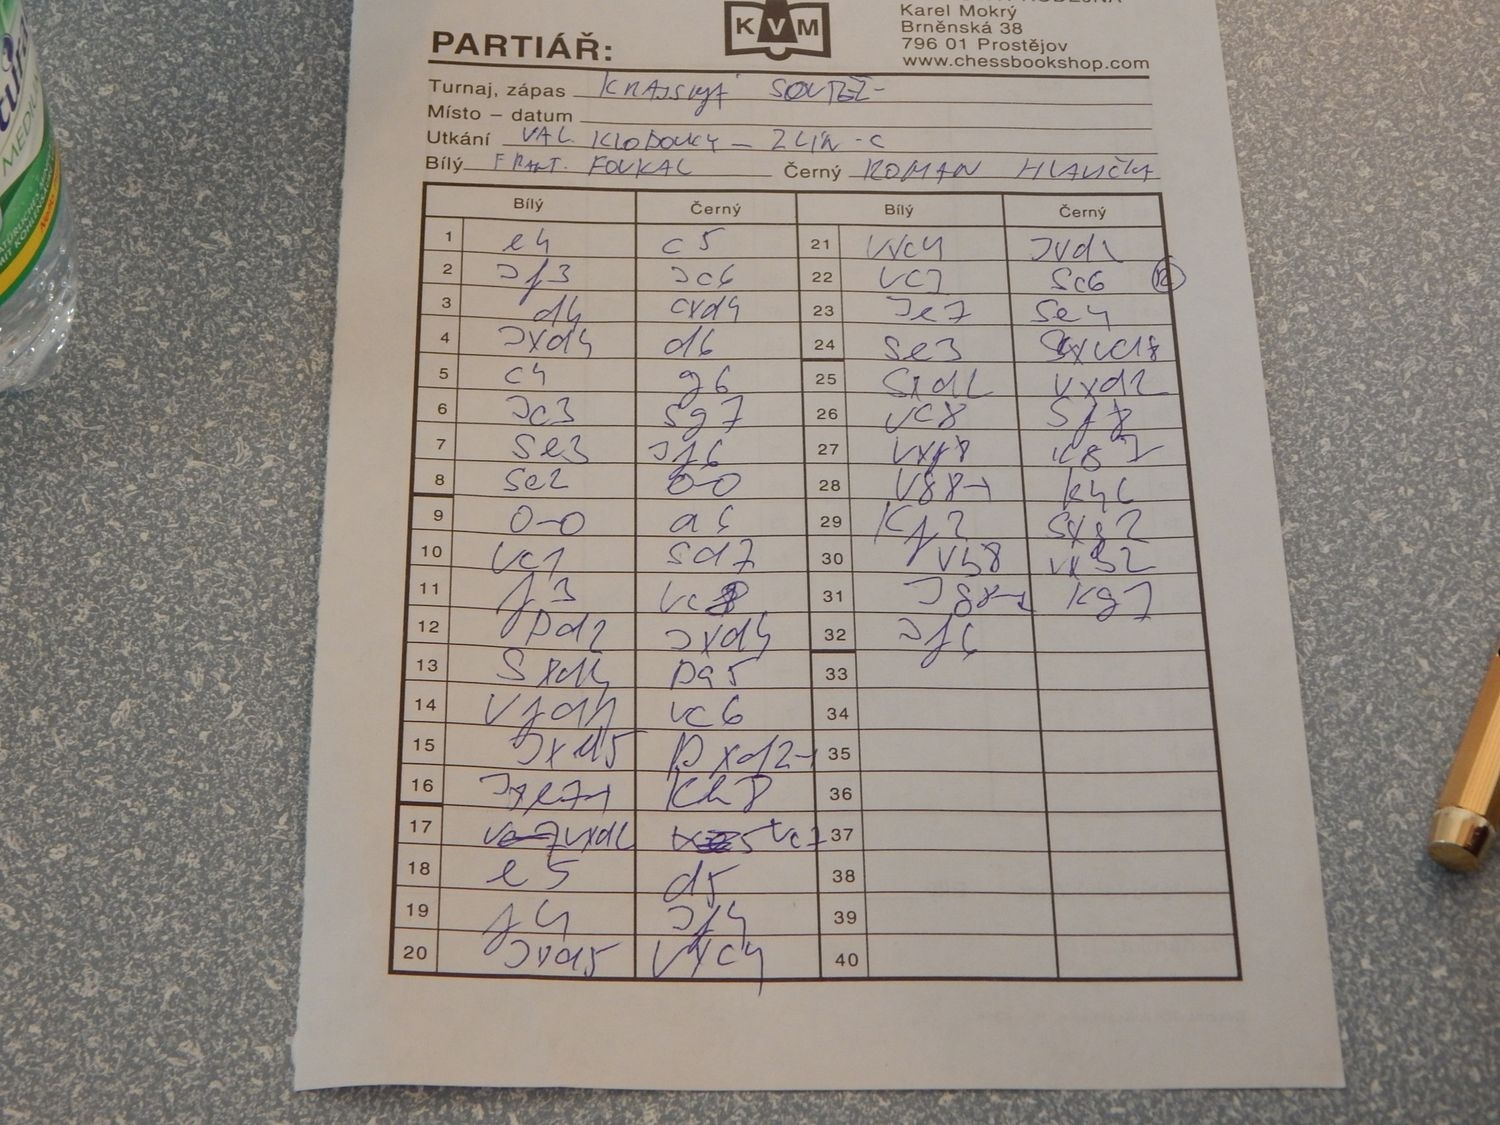 Karel Mokrý
Brněnská 38
796 01 Prostějov
www.chessbookshop.com
KVM
PARTIÁŘ:
Turnaj, zápas KRAJSKÁ SOUTĚŽ
Místo – datum
Utkání VAL. KLOBOUKY – ZLÍN - C
Bílý FRANT. FOUKAL Černý ROMAN HLAVIČKA
Bílý Černý Bílý Černý
1 e4 c5 21 Vxc4 Jxd2
2 Jf3 Jc6 22 Vc7 Sc6
3 d4 cxd4 23 Je7 Se4
4 Jxd4 d6 24 Se3
5 c4 g6 25 Sxd2 Vxd2
6 Jc3 Sg7 26 Vc8 Sf8
7 Se3 Jf6 27 Vxf8 Kg7
8 Se2 0-0 28 Vg8+ Kh6
9 0-0 a6 29 Kf2 Sxg2
10 Vc1 Sd7 30 Vb8 Vxb2
11 f3 Vc8 31 Jg8+ Kg7
12 Dd2 Jxd4 32 Jf6
13 Sxd4 Da5 33
14 Vfd1 Vc6 34
15 Jxd5 Dxd2+ 35
16 Jxe7+ Kh8 36
17 Vxd2 Vc7 37
18 e5 d5 38
19 f4 Jf4 39
20 Jxd5 Vxc4 40